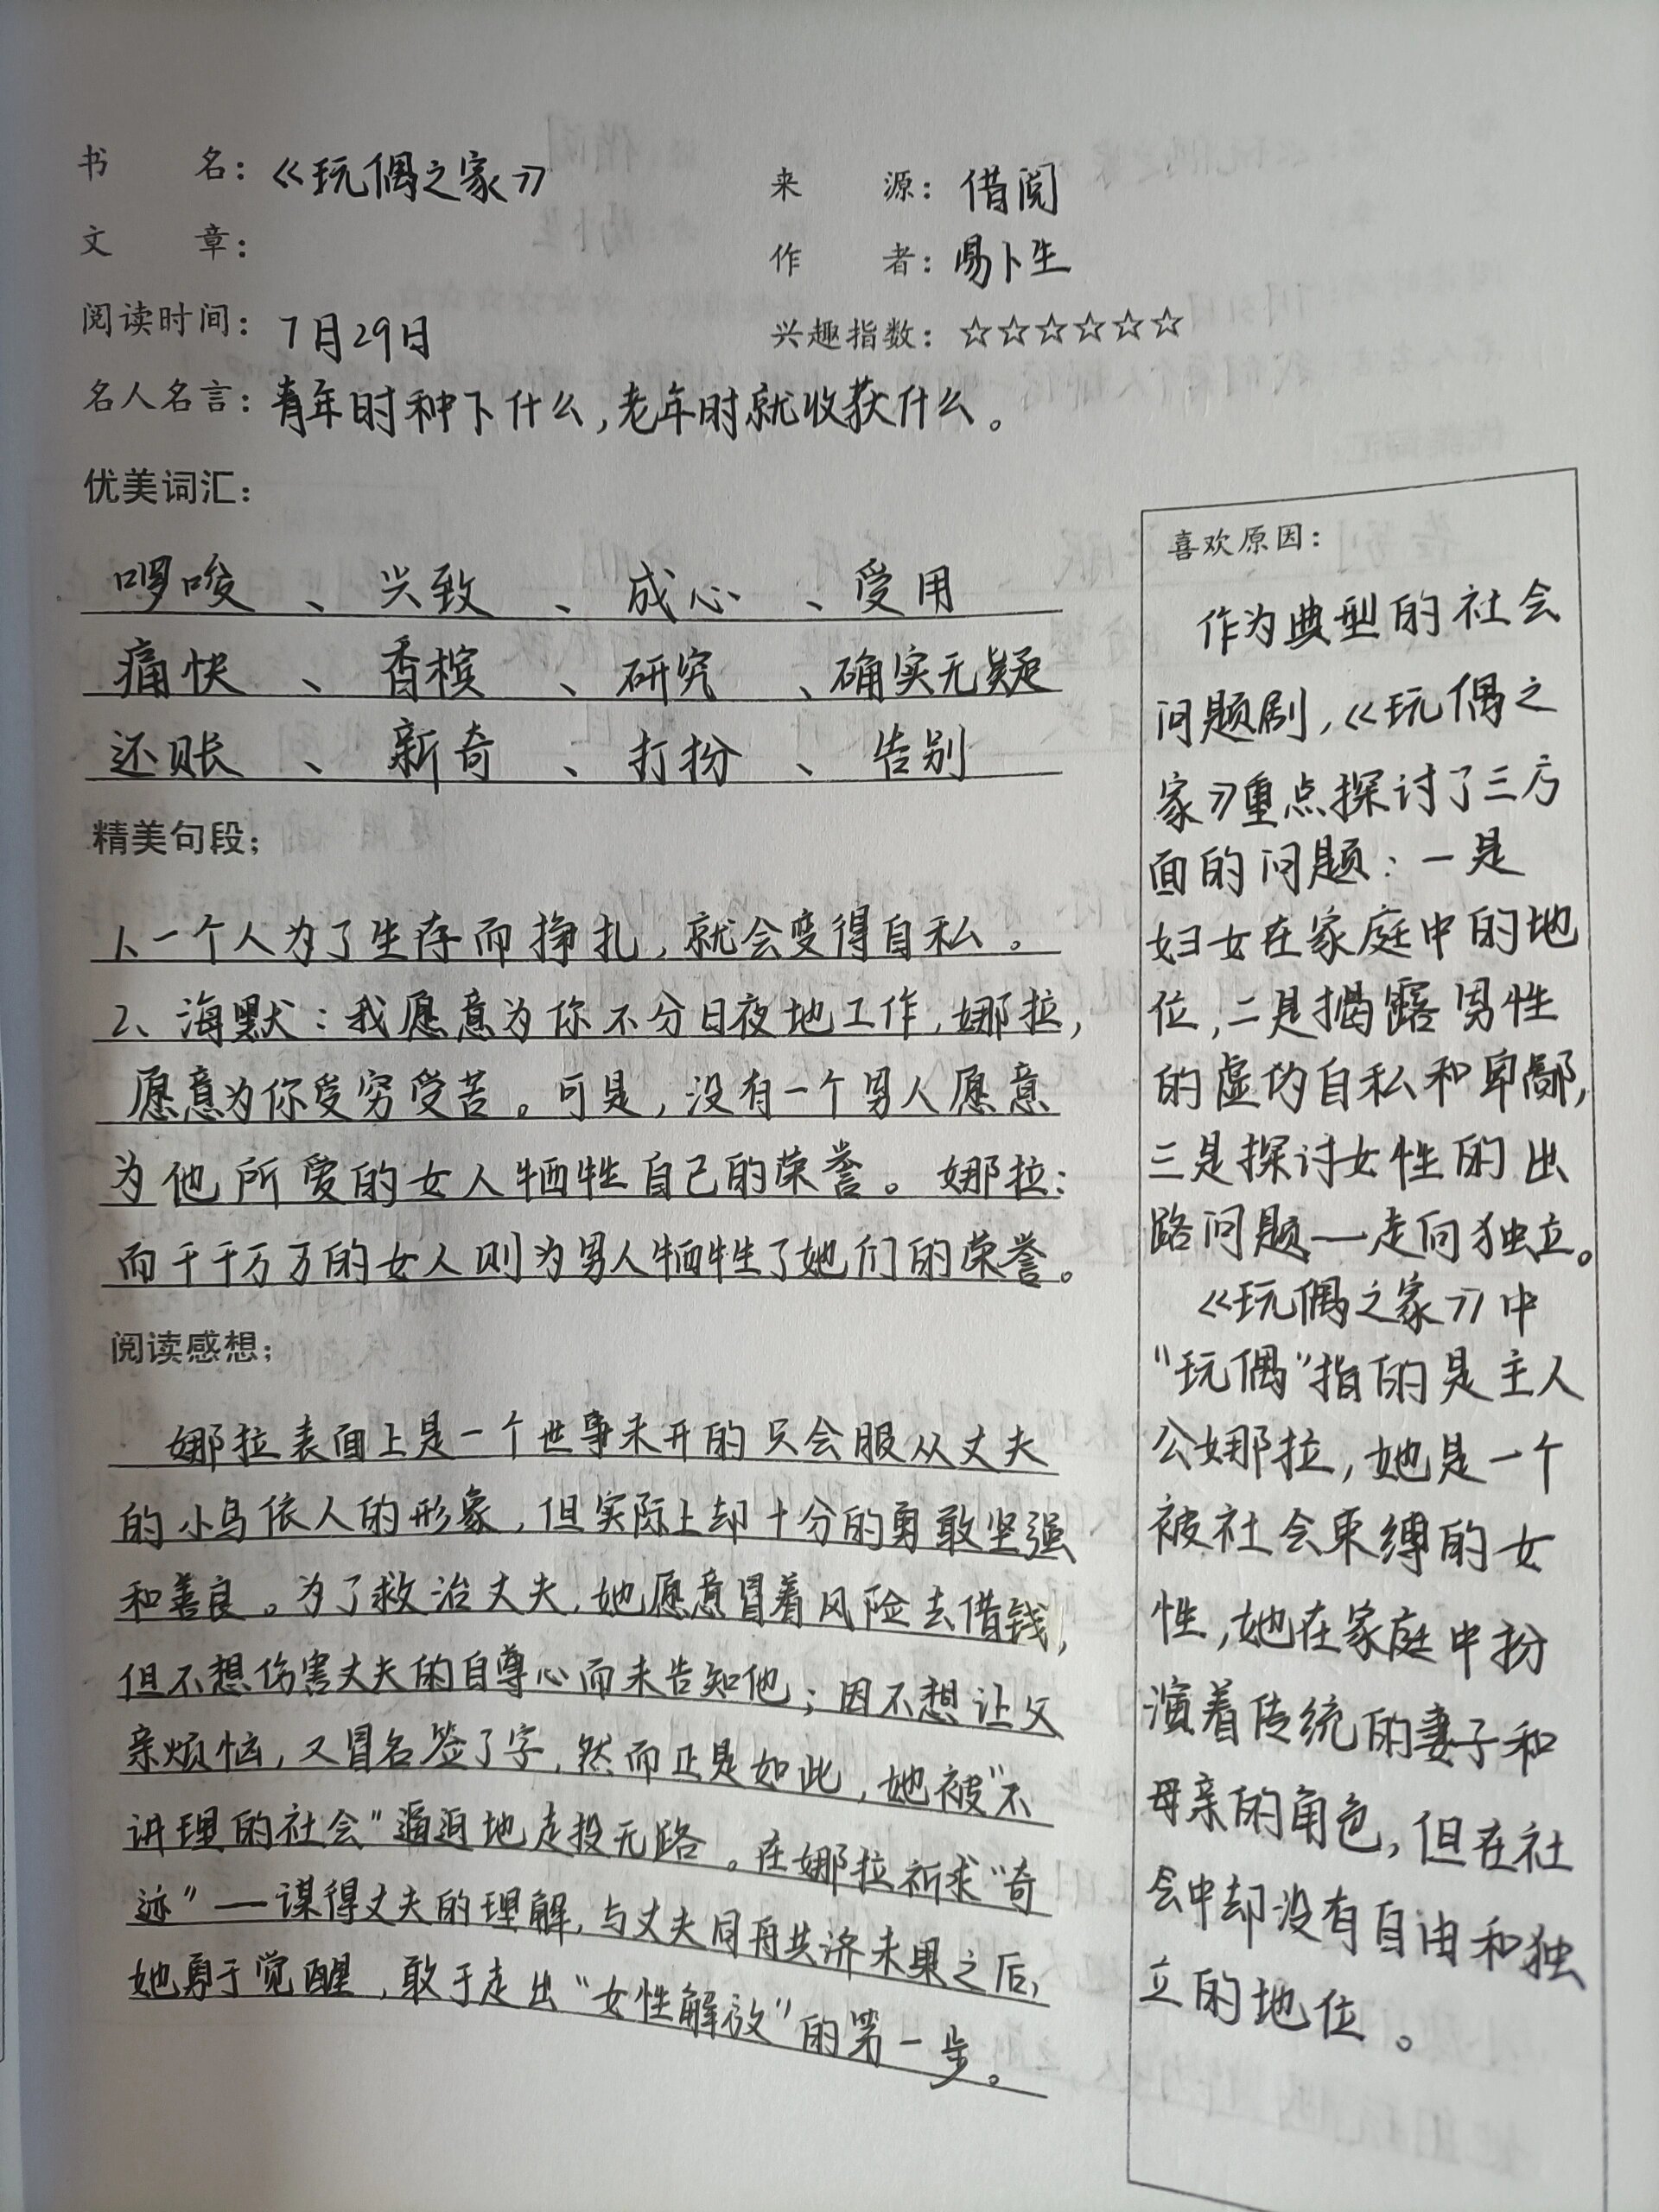 书 名：《玩偶之家》
来 源：借阅
文 章：
作 者：易卜生
阅读时间：7月29日
兴趣指数：☆☆☆☆☆☆
名人名言：青年时种下什么，老年时就收获什么。
优美词汇：
啰唆、兴致、成心、受用
痛快、香槟、研究、确实无疑
还账、新奇、打扮、告别
精美句段；
1、一个人为了生存而挣扎，就会变得自私。
2、海默：我愿意为你不分日夜地工作，娜拉，
愿意为你受穷受苦。可是，没有一个男人愿意
为他所爱的女人牺牲自己的荣誉。娜拉：
而千千万万的女人则为男人牺牲了她们的荣誉。
阅读感想；
娜拉表面上是一个世事未开的只会服从丈夫
的小鸟依人的形象，但实际上却十分的勇敢坚强
和善良。为了救治丈夫，她愿意冒着风险去借钱，
但不想伤害丈夫的自尊心而未告知他；因不想让父
亲烦恼，又冒名签了字，然而正是如此，她被“不
讲理的社会”逼迫地走投无路。在娜拉祈求“奇
迹”—谋得丈夫的理解，与丈夫同舟共济未果之后，
她勇于觉醒，敢于走出“女性解放”的第一步。
喜欢原因：
作为典型的社会
问题剧，《玩偶之
家》重点探讨了三方
面的问题：一是
妇女在家庭中的地
位，二是揭露男性
的虚伪自私和卑鄙，
三是探讨女性的出
路问题—走向独立。
《玩偶之家》中
“玩偶”指的是主人
公娜拉，她是一个
被社会束缚的女
性，她在家庭中扮
演着传统的妻子和
母亲的角色，但在社
会中却没有自由和独
立的地位。